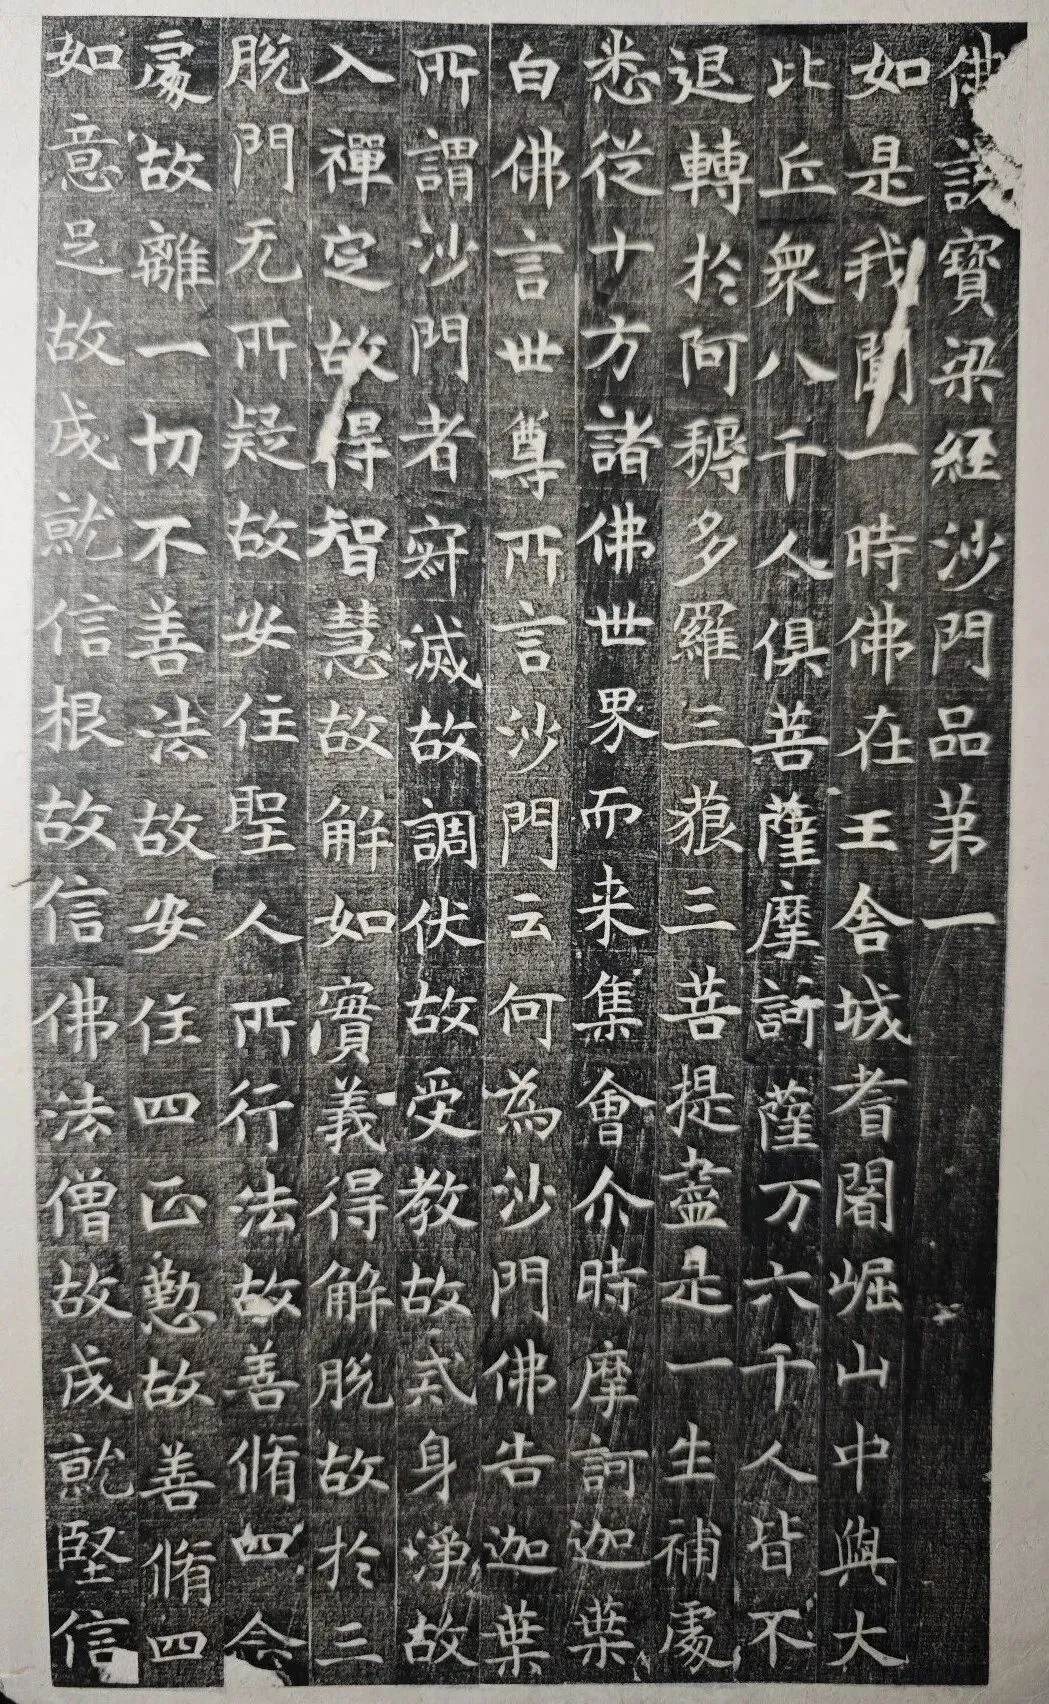 佛說寶梁經沙門品苐一
如是我聞一時佛在王舍城耆闍崛山中與大
比丘衆八千人俱菩薩摩訶薩万六千人皆不
退轉於阿耨多羅三藐三菩提盡是一生補處
悉從十方諸佛世界而来集會尒時摩訶迦葉
白佛言世尊所言沙門云何為沙門佛告迦葉
所謂沙門者寂滅故調伏故受教故戒身淨故
入禪定故得智慧故解如實義得解脫故於三
脫門无所疑故安住聖人所行法故善脩四念
處故離一切不善法故安住四正懃故善脩四
如意足故成就信根故信佛法僧故成就堅信